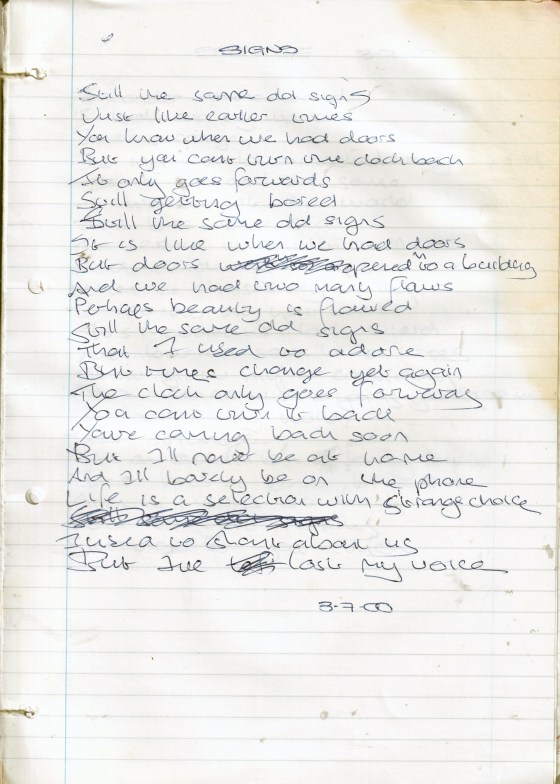 SIGNS
Still the same old signs
Just like earlier times
You know when we had doors
But you cant turn the clock back
It only goes forwards
Still getting bored
Still the same old signs
It is like when we had doors
But doors opened in to a building
And we had two many flaws
Perhaps beauty is flawed
Still the same old signs
That I used to adore
But times change yet again
The clock only goes forward
You cant turn it back
Youre coming back soon
But I'll not be at home
And I'll barely be on the phone
Life is a selection with strange choice
I used to about us
But I've lost my voice
3-7-00